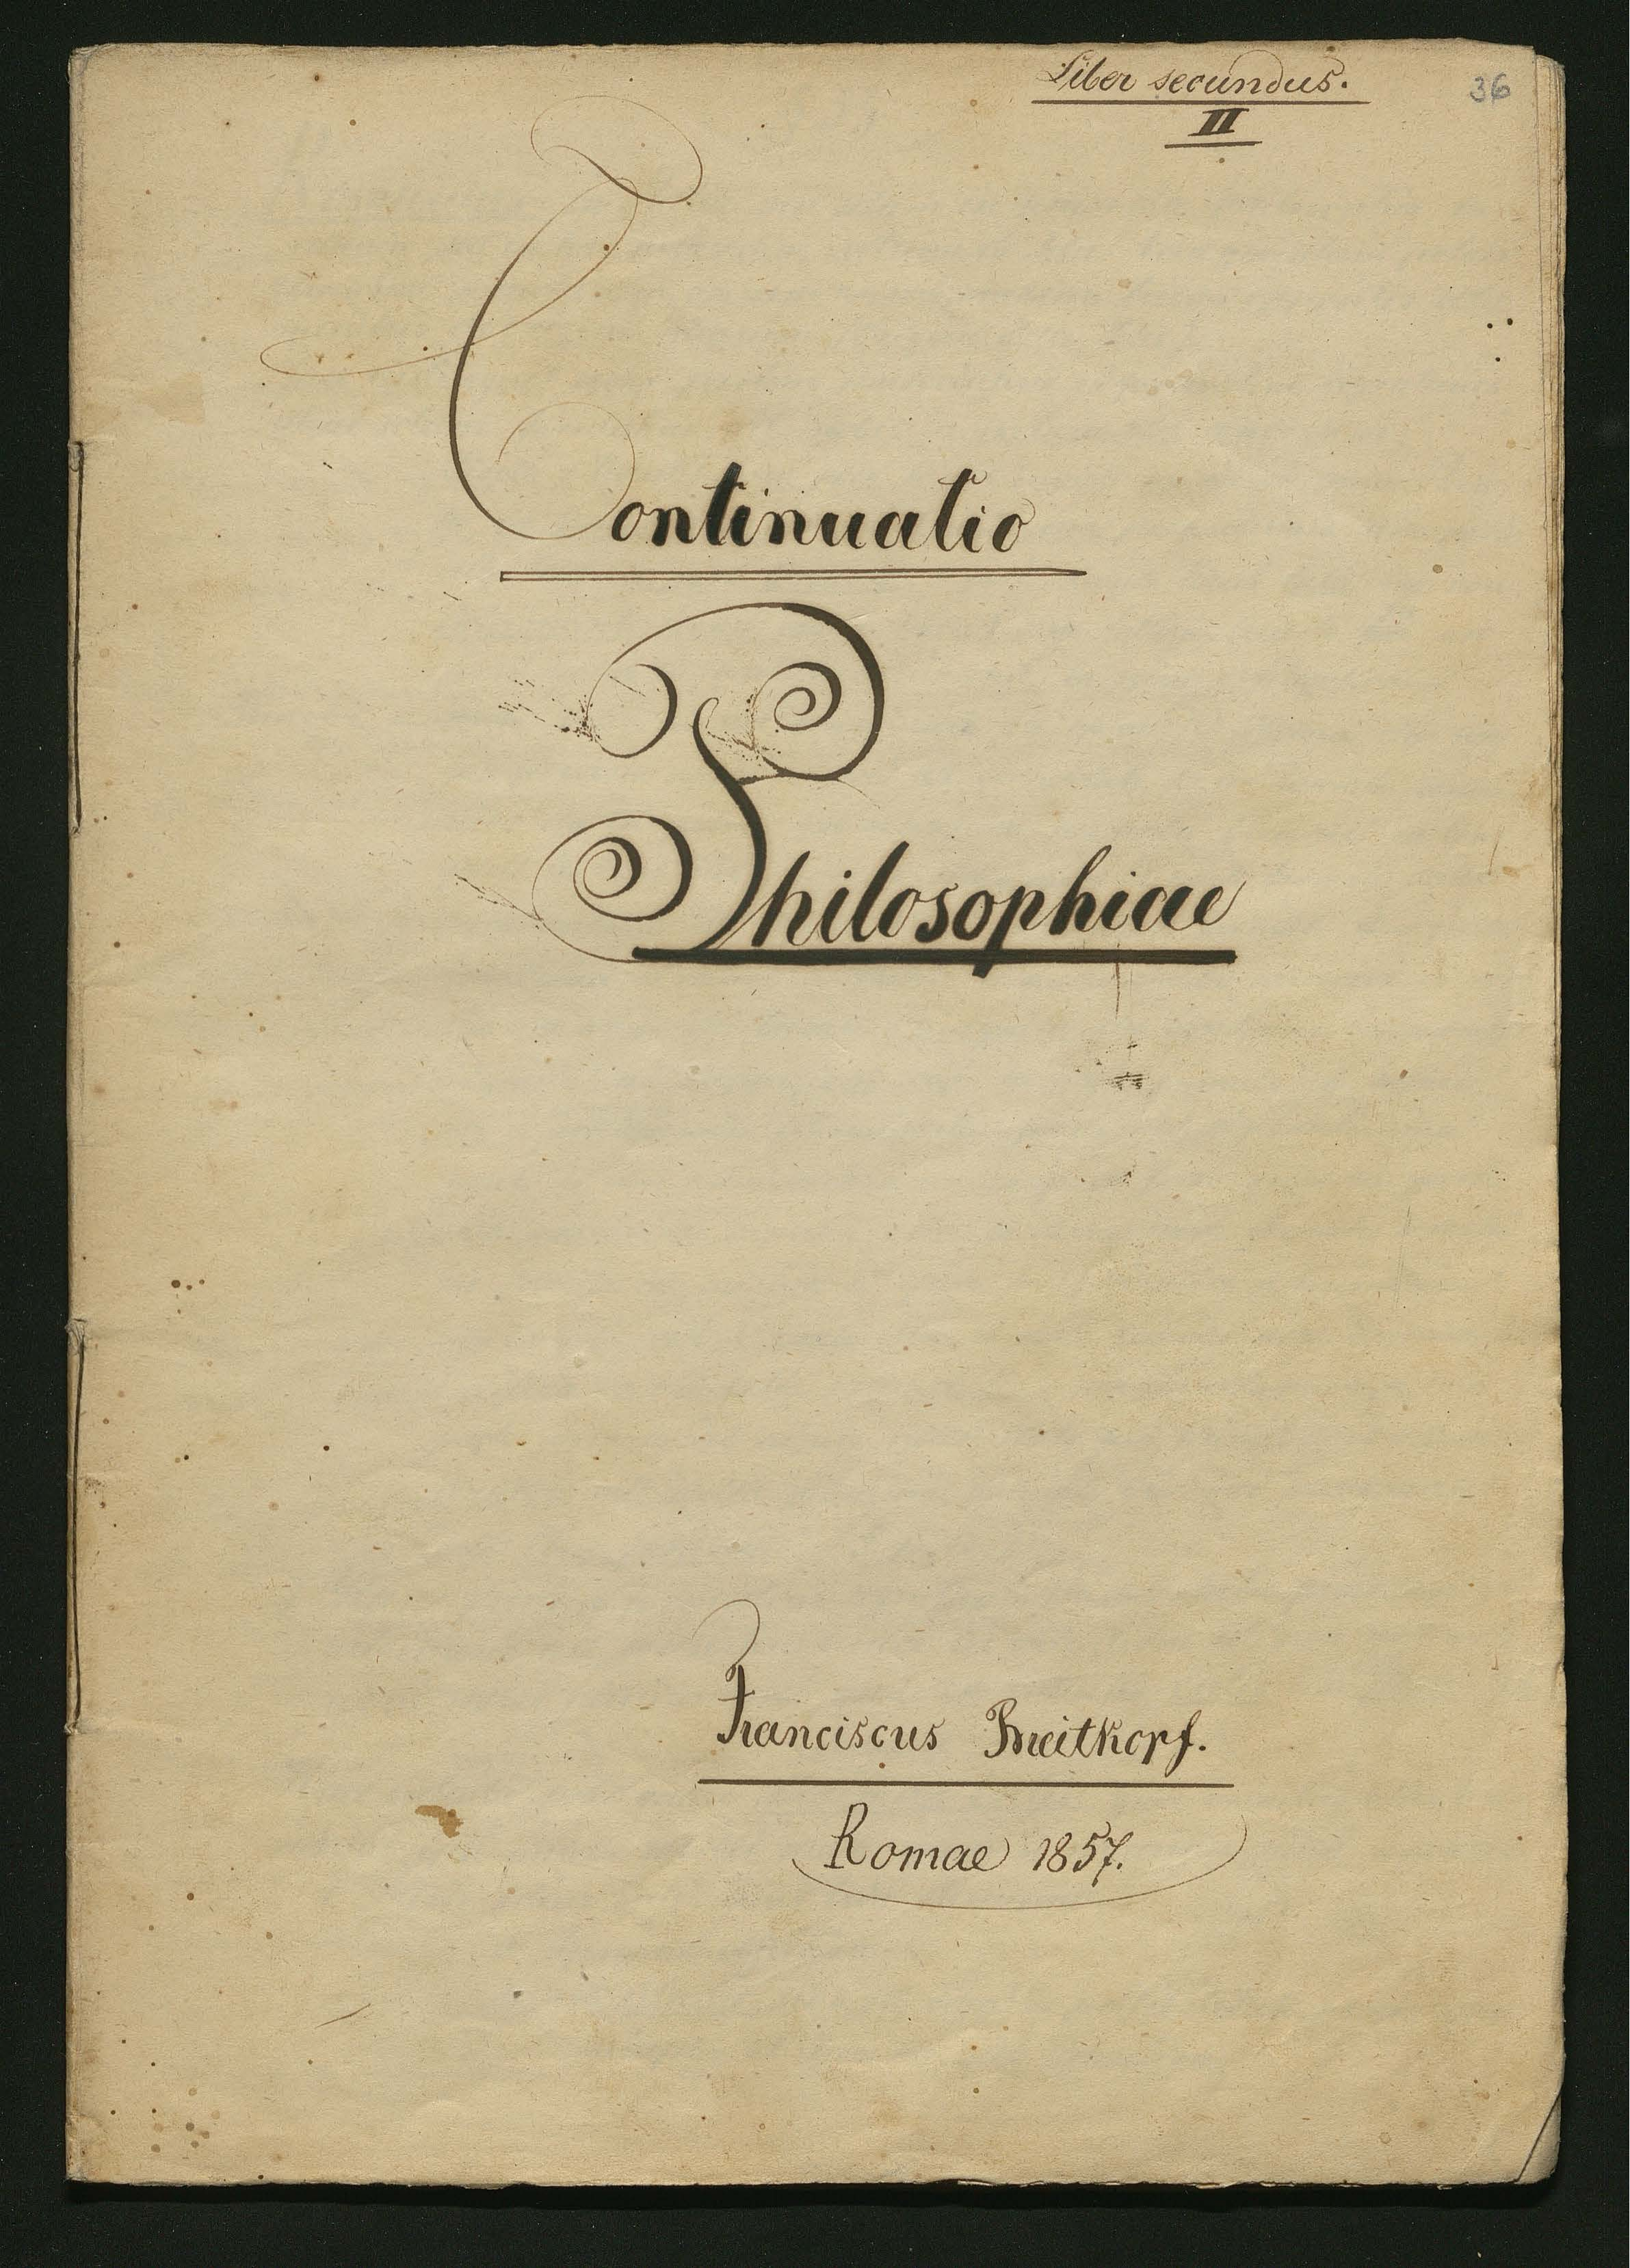 Liber secundus.
36
II
Continuatio
Philosophiae
Franciscus Breitkopf.
Romae 1857.